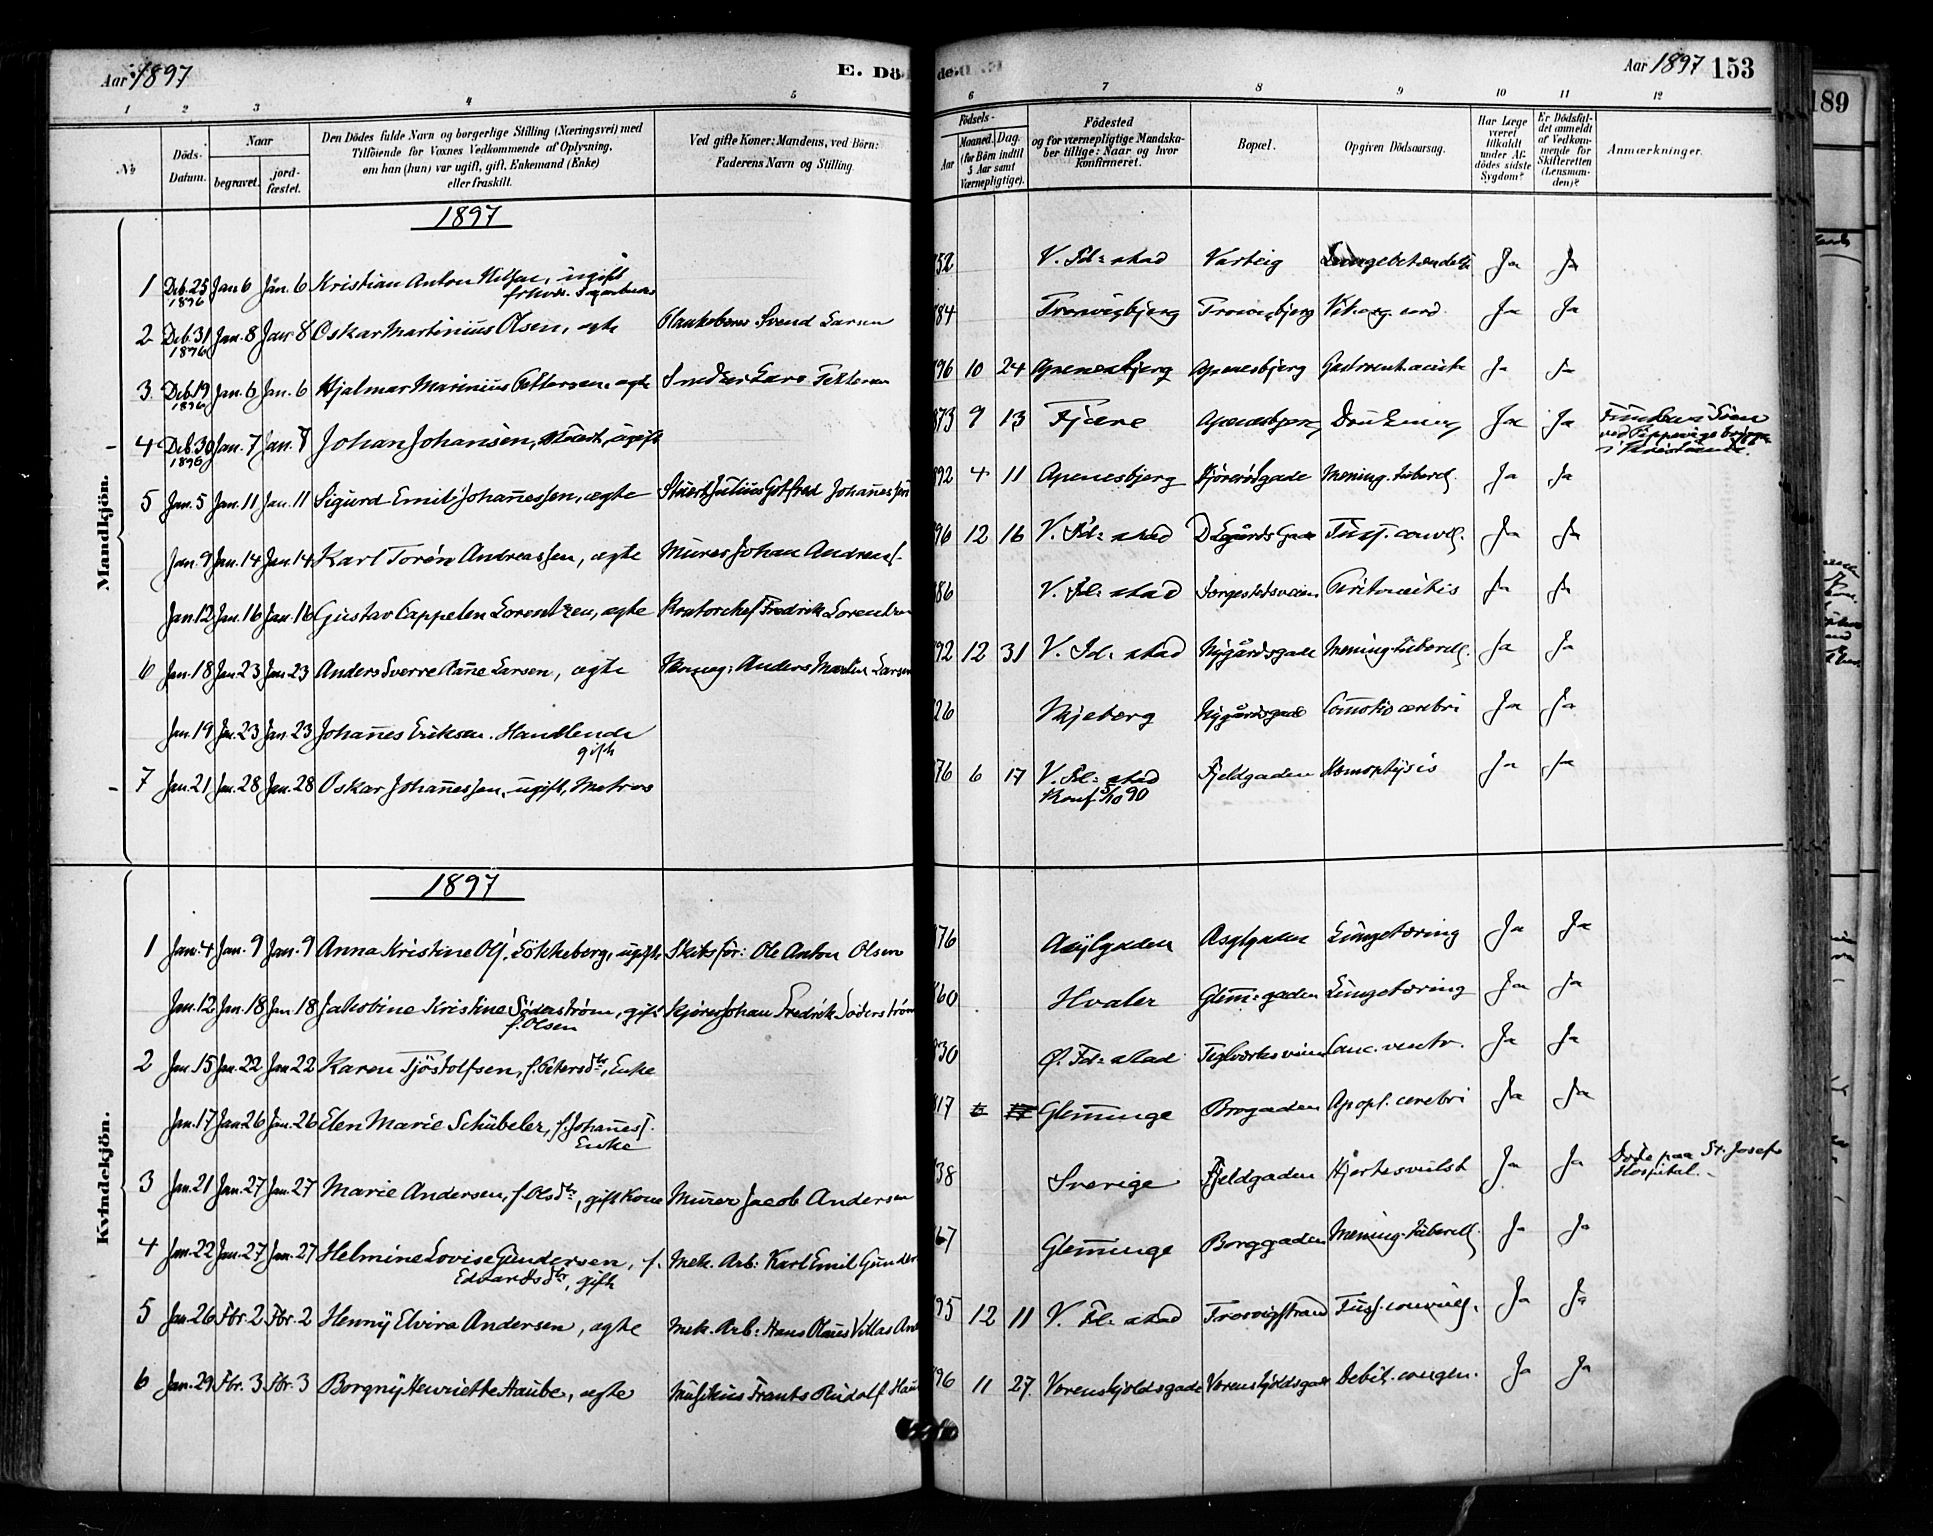 Aar 1897
E. Dö
de
Aar 1897 153
189
1 2 3 4 5 6 7 8 9 10 11 12
No
Döds-Datum.
Naar
begravet.
jord-fæstet.
Den Dödes fulde Navn og borgerlige Stilling (Næringsvei) med
Tilföiende for Voxnes Vedkommende af Oplysning,
om han (hun) var ugift, gift, Enkemand (Enke)
eller fraskilt.
Ved gifte Koner: Mandens, ved Börn:
Faderens Navn og Stilling.
Födsels-
Aar
Maaned. Dag.
(for Börn indtil
5 Aar samt
Værnepligtige).
Födested
og for værnepligtige Mandska-
ber tillige: Naar og hvor
konfirmeret.
Bopæl.
Opgiven Dödsaarsag.
Har Læge
været
tilkaldt
under Af-
dödes sidste
Sygdom?
Er Dödsfal-
det anmeldt
af Vedkom-
mende for
Skifteretten
(Lensman-
den)?
Anmærkninger.
Mandkjön.
1897
1 Deb. 25 1896 Jan 6 Jan. 6 Kristian Anton ugift 52 V. Fd:stad Varteig Lungebetændelse Ja Ja
2 Deb. 31 1896 Jan. 8 Jan 8 Oskar Martinius Olsen, ægte Svend Larsen 84 Trosvigbjerg Trosvigbjerg Ja Ja
3. Deb. 19 1896 Jan. 6 Jan. 6 Hjalmar Marinius Pettersen, ægte Lars Petterson 96 10 24 Apenesbjerg Apenesbjerg Ja Ja
4 Deb. 30 1896 Jan. 7 Jan. 7 Johan Johansen, ugift 873 9 13 Fjære Apenesbjerg Drukning Ja Ja
5 Jan. 5 Jan. 11 Jan. 11 Sigurd Emil Johannessen, ægte Stuert Julius Gotfred Johannessen 892 4 11 Apenesbjerg Mening. tubercl. Ja Ja
Jan. 9 Jan. 14 Jan. 14 Karl Torøn Andreassen, ægte Murer Johan Andreas. 96 12 16 V. Fd:stad Tuss. convls. Ja Ja
Jan. 12 Jan. 16 Jan. 16 Gustav Cappelen Lorentzen, ægte Kontorchef Fredrik Lorentzen 86 V. Fd:stad Peritonitis Ja Ja
6 Jan. 18 Jan. 23 Jan. 23 Anders Sverre Aane Larsen, ægte Anders Martin Larsen 92 12 31 V. Fd:stad Nygårdsgade Mening. tubercl. Ja Ja
Jan. 19 Jan. 23 Jan. 23 Johannes Eriksen. Handlende
gift 26 Skjeberg Nygårdsgade Comotio cerebri Ja Ja
7 Jan. 21 Jan. 28 Jan. 28 Oskar Johannessen, ugift, Matros 76 6 17 V. Fd:stad Fjeldgaden Hæmoptysis Ja Ja
Konf. 5/10 90
Kvindekjön.
1897
1 Jan. 4 Jan. 9 Jan. 9 Anna Kristine Ols. Løkkeberg, ugift. Skibsför: Ole Anton Olsen 76 Asylgaden Asylgaden Lungetæring Ja Ja
Jan. 12 Jan. 18 Jan. 18 Jakobine Kristine Söderström, gift Kjører Johan Fredrik Söderström 60 Hvaler Glem:gaden Lungetæring Ja Ja
f. Olsen
2 Jan. 15 Jan. 22 Jan 22 Karen Tjöstolfsen, f. Petersdtr, Enke 30 Ø. Fd:stad Teglværksveien Canc. ventr. Ja Ja
Jan. 17 Jan 26 Jan. 26 Elen Marie Schübeler, f. Johanness. 17 Glemminge Borgaden Apopl. cerebri Ja Ja
Enke
3 Jan. 21 Jan. 27 Jan. 27 Marie Andersen, f. Olsdtr, gift Kone Murer Jacob Andersen 38 Sverige Fjeldgaden Hjertesvulst Ja Ja Døde paa St. Josefs
Hospital.
4 Jan. 22 Jan. 27 Jan. 27 Helmine Lovise Gundersen, f. Mek. Arb: Karl Emil Gunder 67 Glemminge Borggaden Mening. tubercl. Ja Ja
Edvardsdtr, gift
5 Jan. 26 Fbr. 2 Fbr. 2 Henny Elvira Andersen, ægte Mek. Arb: Hans Olaus Villas And 95 12 11 V. Fd:stad Trosvigstrand Tuss. convuls. Ja Ja
6 Jan. 29 Fbr. 3 Fbr. 3 Borgny Henriette Haube, ægte Musikus Frants Rudolf Hau 96 11 27. Værenskjoldsgade Værenskjoldsgade Debil. congen. Ja Ja